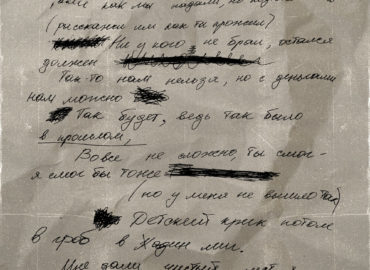 как мы падали, но
(расскажи им как ты прожил)
Ни у кого не брал, остался
должен
Так-то нам нельзя, но с деньгами
нам можно
Так будет, ведь так было
в прошлом,
Вовсе не сложно, ты смог-
я смог бы тоже
(но у меня не вышло)
Детский крик потом
в гроб в один миг.
Мне дали чистый лист